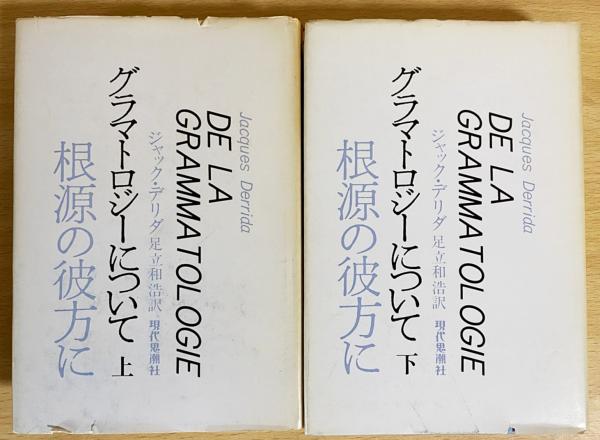 Jacques Derrida
DE LA
GRAMMATOLOGIE
ジャック・デリダ 足立和浩訳 現代思潮社
グラマトロジーについて 上
根源の彼方に
Jacques Derrida
DE LA
GRAMMATOLOGIE
ジャック・デリダ 足立和浩訳 現代思潮社
グラマトロジーについて 下
根源の彼方に